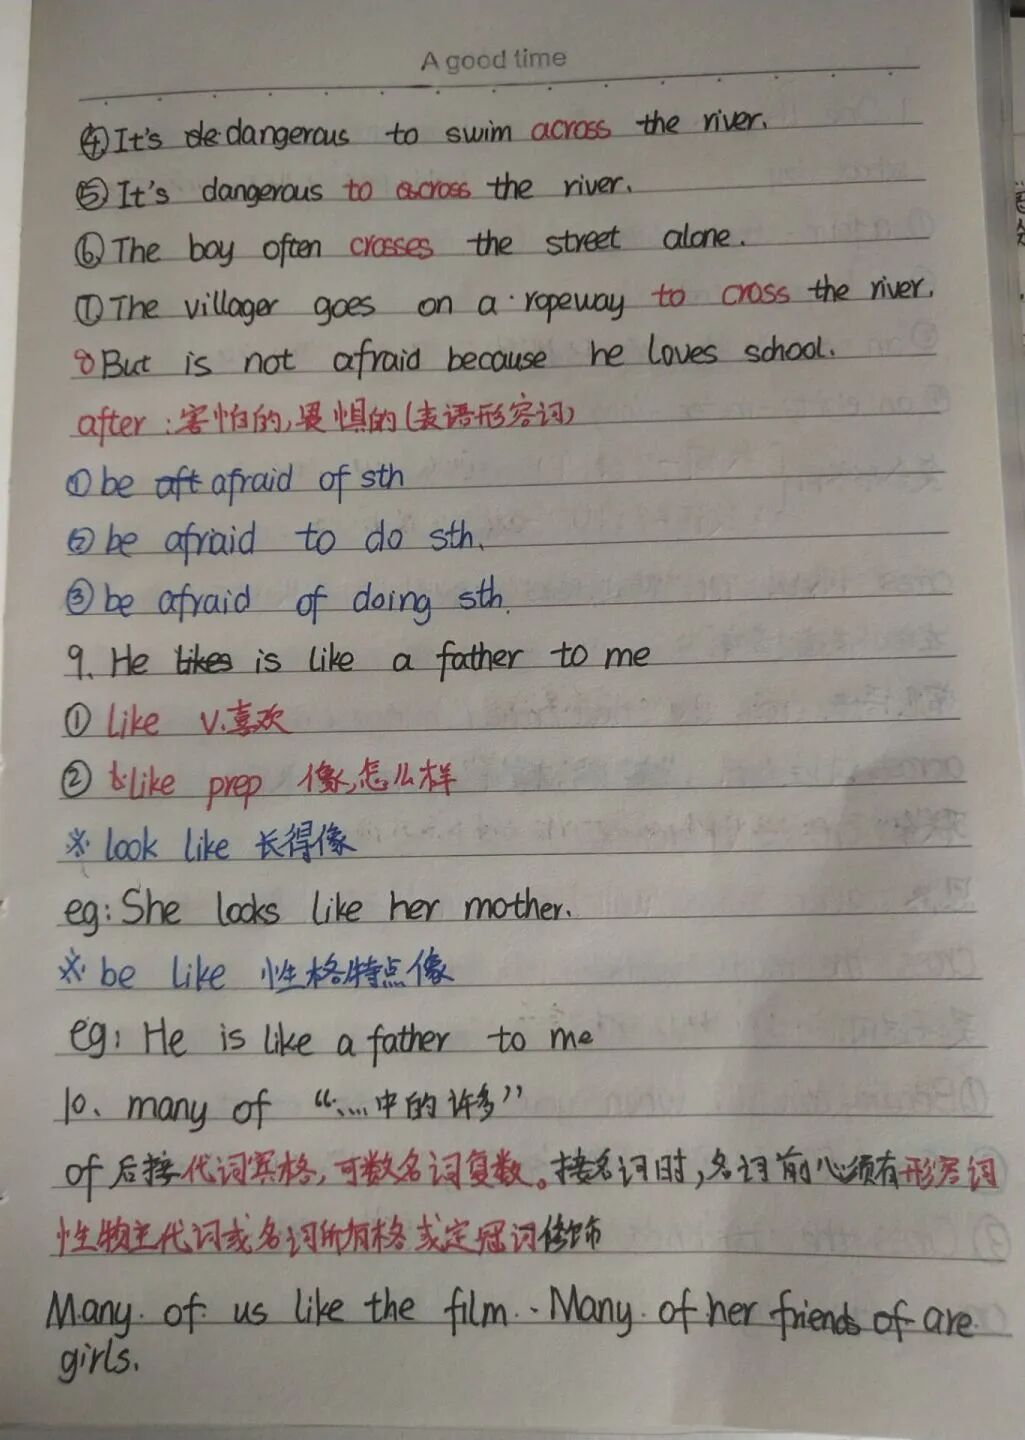 A good time
④It's de dangerous to swim across the river.
⑤It's dangerous to across the river.
⑥The boy often crosses the street alone.
⑦The villager goes on a ropeway to cross the river.
8 But is not afraid because he loves school.
after:害怕的,畏惧的(表语形容词)
①be aft afraid of sth
②be afraid to do sth.
③be afraid of doing sth.
9. He likes is like a father to me
① like v.喜欢
② like prep 像,怎么样
※ look like 长得像
eg:She looks like her mother.
※ be like 性格特点像
eg: He is like a father to me
10、many of “....中的许多”
of后接代词宾格,可数名词复数。接名词时,名词前必须有形容词
性物主代词或名词所有格或定冠词修饰
Many of us like the film. Many of her friends of are
girls.